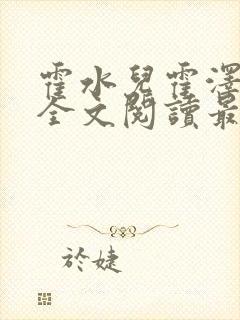 霍水兒霍澤
全文閱讀最
於婕